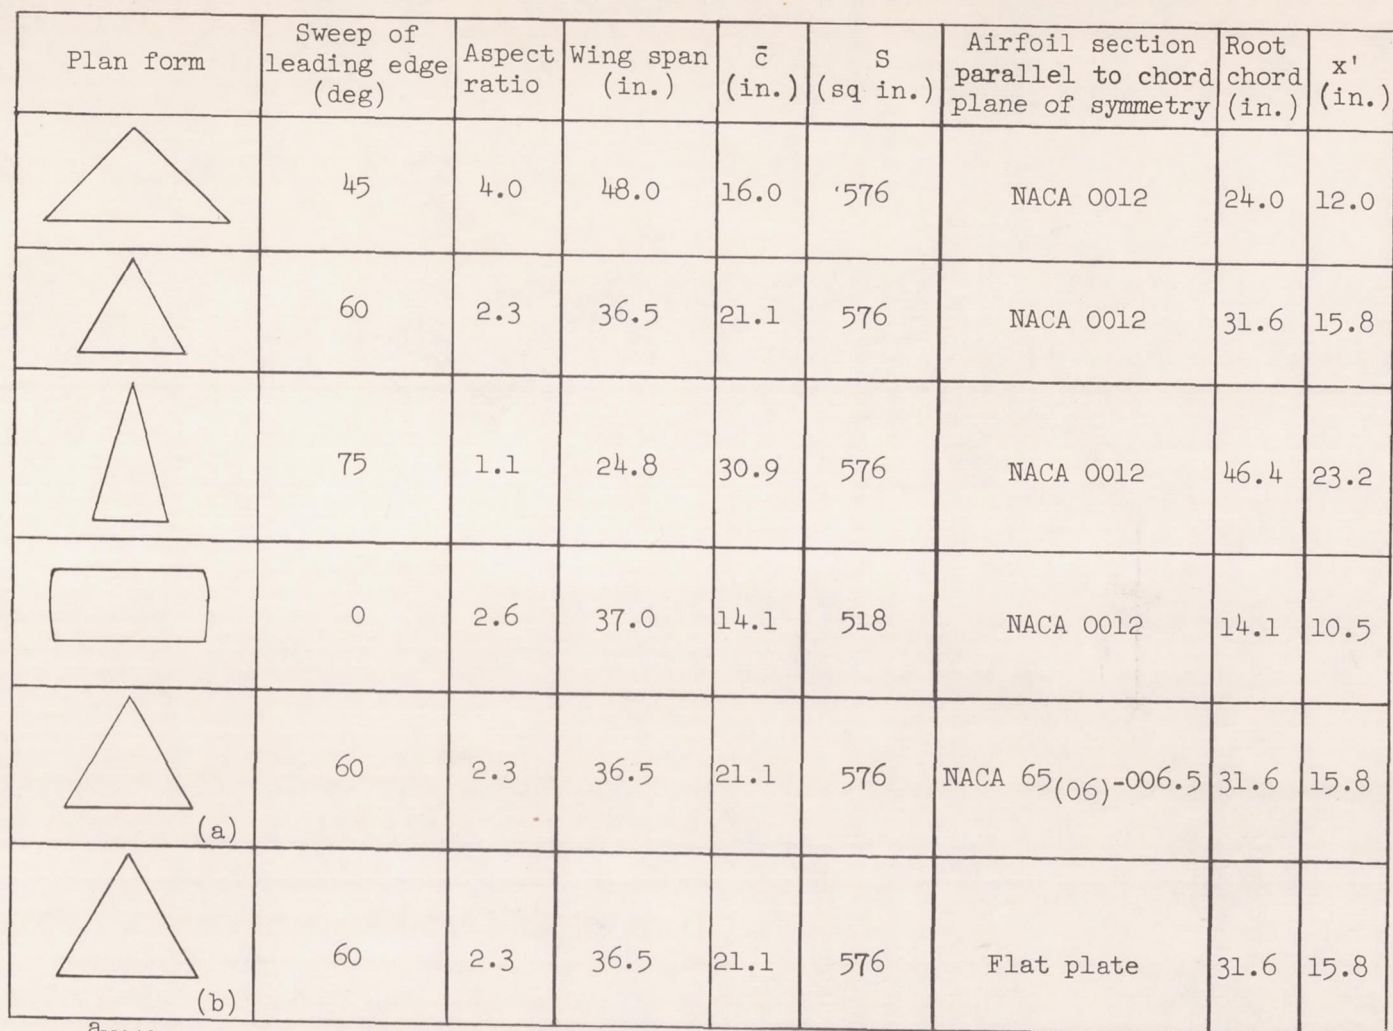 Plan form | Sweep of leading edge (deg) | Aspect ratio | Wing span (in.) | c̄ (in.) | S (sq in.) | Airfoil section parallel to chord plane of symmetry | Root chord (in.) | x' (in.)
45 | 4.0 | 48.0 | 16.0 | 576 | NACA 0012 | 24.0 | 12.0
60 | 2.3 | 36.5 | 21.1 | 576 | NACA 0012 | 31.6 | 15.8
75 | 1.1 | 24.8 | 30.9 | 576 | NACA 0012 | 46.4 | 23.2
0 | 2.6 | 37.0 | 14.1 | 518 | NACA 0012 | 14.1 | 10.5
(a) | 60 | 2.3 | 36.5 | 21.1 | 576 | NACA 65(06)-006.5 | 31.6 | 15.8
(b) | 60 | 2.3 | 36.5 | 21.1 | 576 | Flat plate | 31.6 | 15.8
a